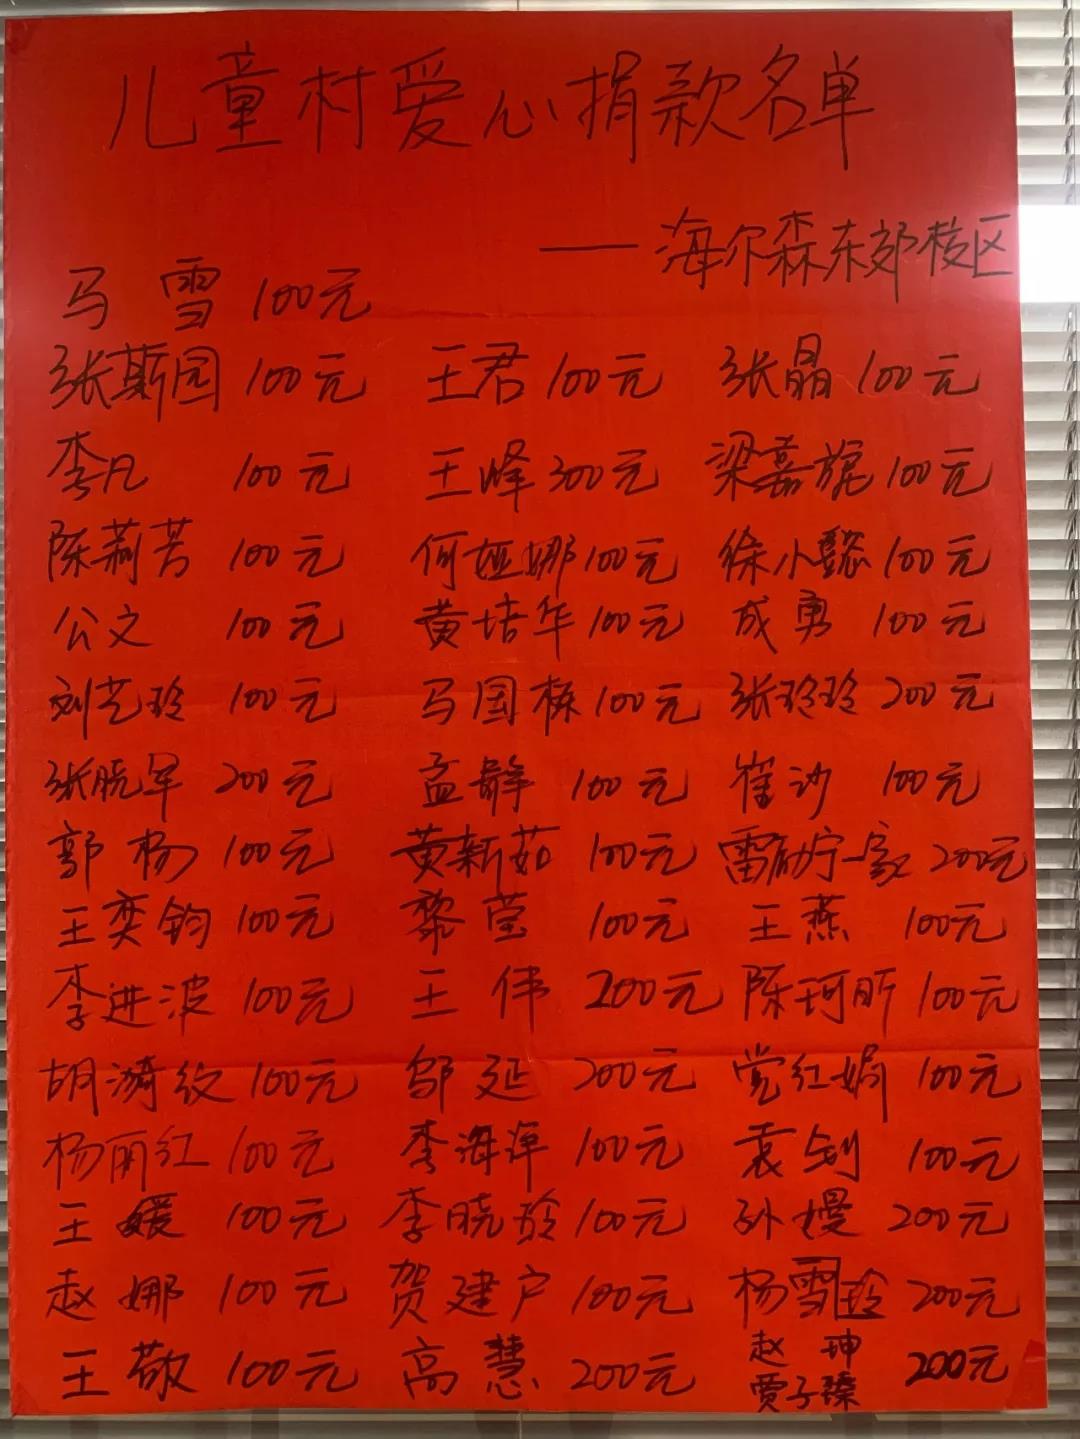 儿童村爱心捐款名单
——海尔森东郊校区
马雪 100元
张斯园 100元 王君 100元 张晶 100元
李凡 100元 王峰 300元 梁嘉旎 100元
陈莉芳 100元 何娅娜 100元 徐小懿 100元
公文 100元 黄培华 100元 成勇 100元
刘艺玲 100元 马国栋 100元 张玲玲 200元
张晓军 200元 孟静 100元 崔沙 100元
郭杨 100元 黄新茹 100元 雷励宁一家 200元
王奕钧 100元 黎莹 100元 王燕 100元
李进波 100元 王伟 200元 陈珂昕 100元
胡漪纹 100元 邬延 200元 党红娟 100元
杨丽红 100元 李海萍 100元 袁钊 100元
王媛 100元 李晓玲 100元 孙嫚 200元
赵娜 100元 贺建户 100元 杨雪玲 200元
王敬 100元 高慧 200元 赵珅 贾子臻 200元